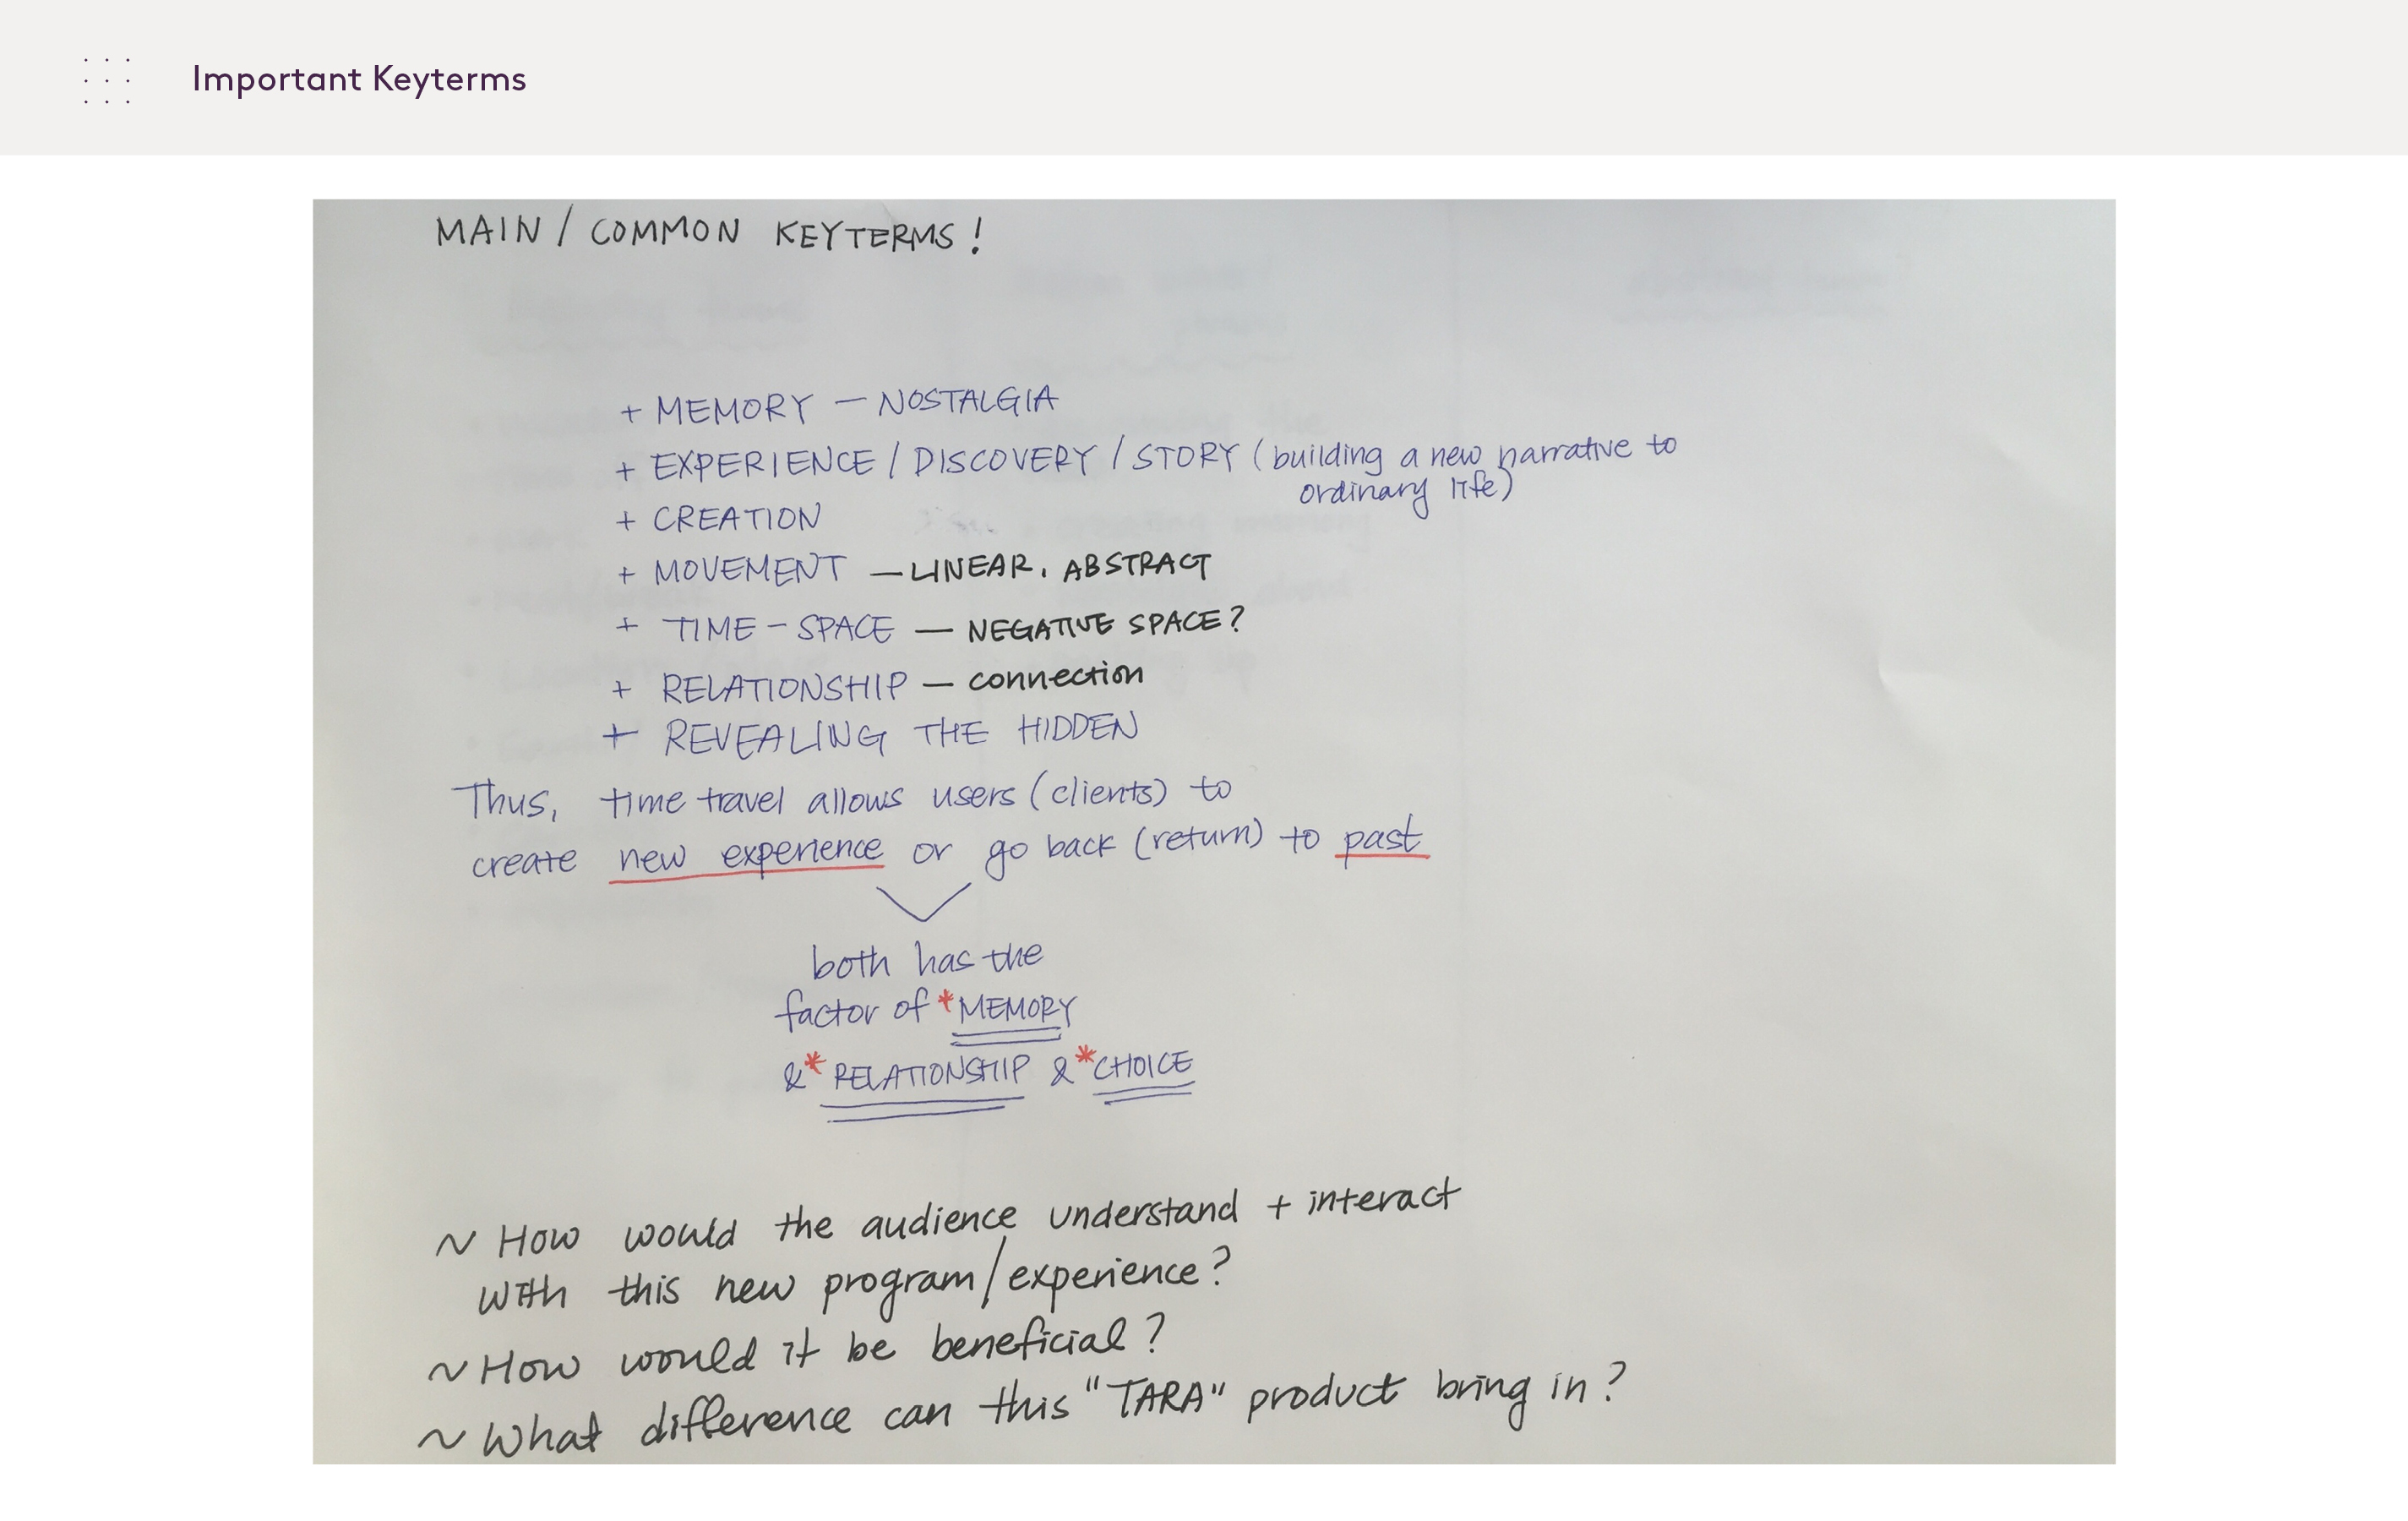 Important Keyterms
MAIN / COMMON KEYTERMS !
+ MEMORY — NOSTALGIA
+ EXPERIENCE / DISCOVERY / STORY (building a new narrative to
ordinary life)
+ CREATION
+ MOVEMENT — LINEAR, ABSTRACT
+ TIME - SPACE — NEGATIVE SPACE?
+ RELATIONSHIP — connection
+ REVEALING THE HIDDEN
Thus, time travel allows users (clients) to
create new experience or go back (return) to past
both has the
factor of *MEMORY
& *RELATIONSHIP & *CHOICE
~ How would the audience understand + interact
with this new program/experience?
~ How would it be beneficial?
~ What difference can this "TARA" product bring in?